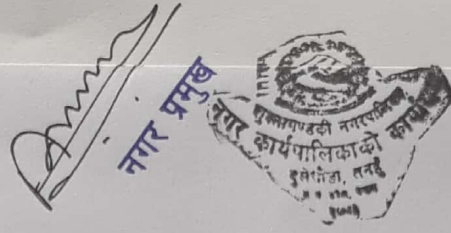 नगर प्रमुख
शुक्लागण्डकी नगरपालिका
नगर कार्यपालिकाको कार्यालय
दुलेगौडा, तनहुँ